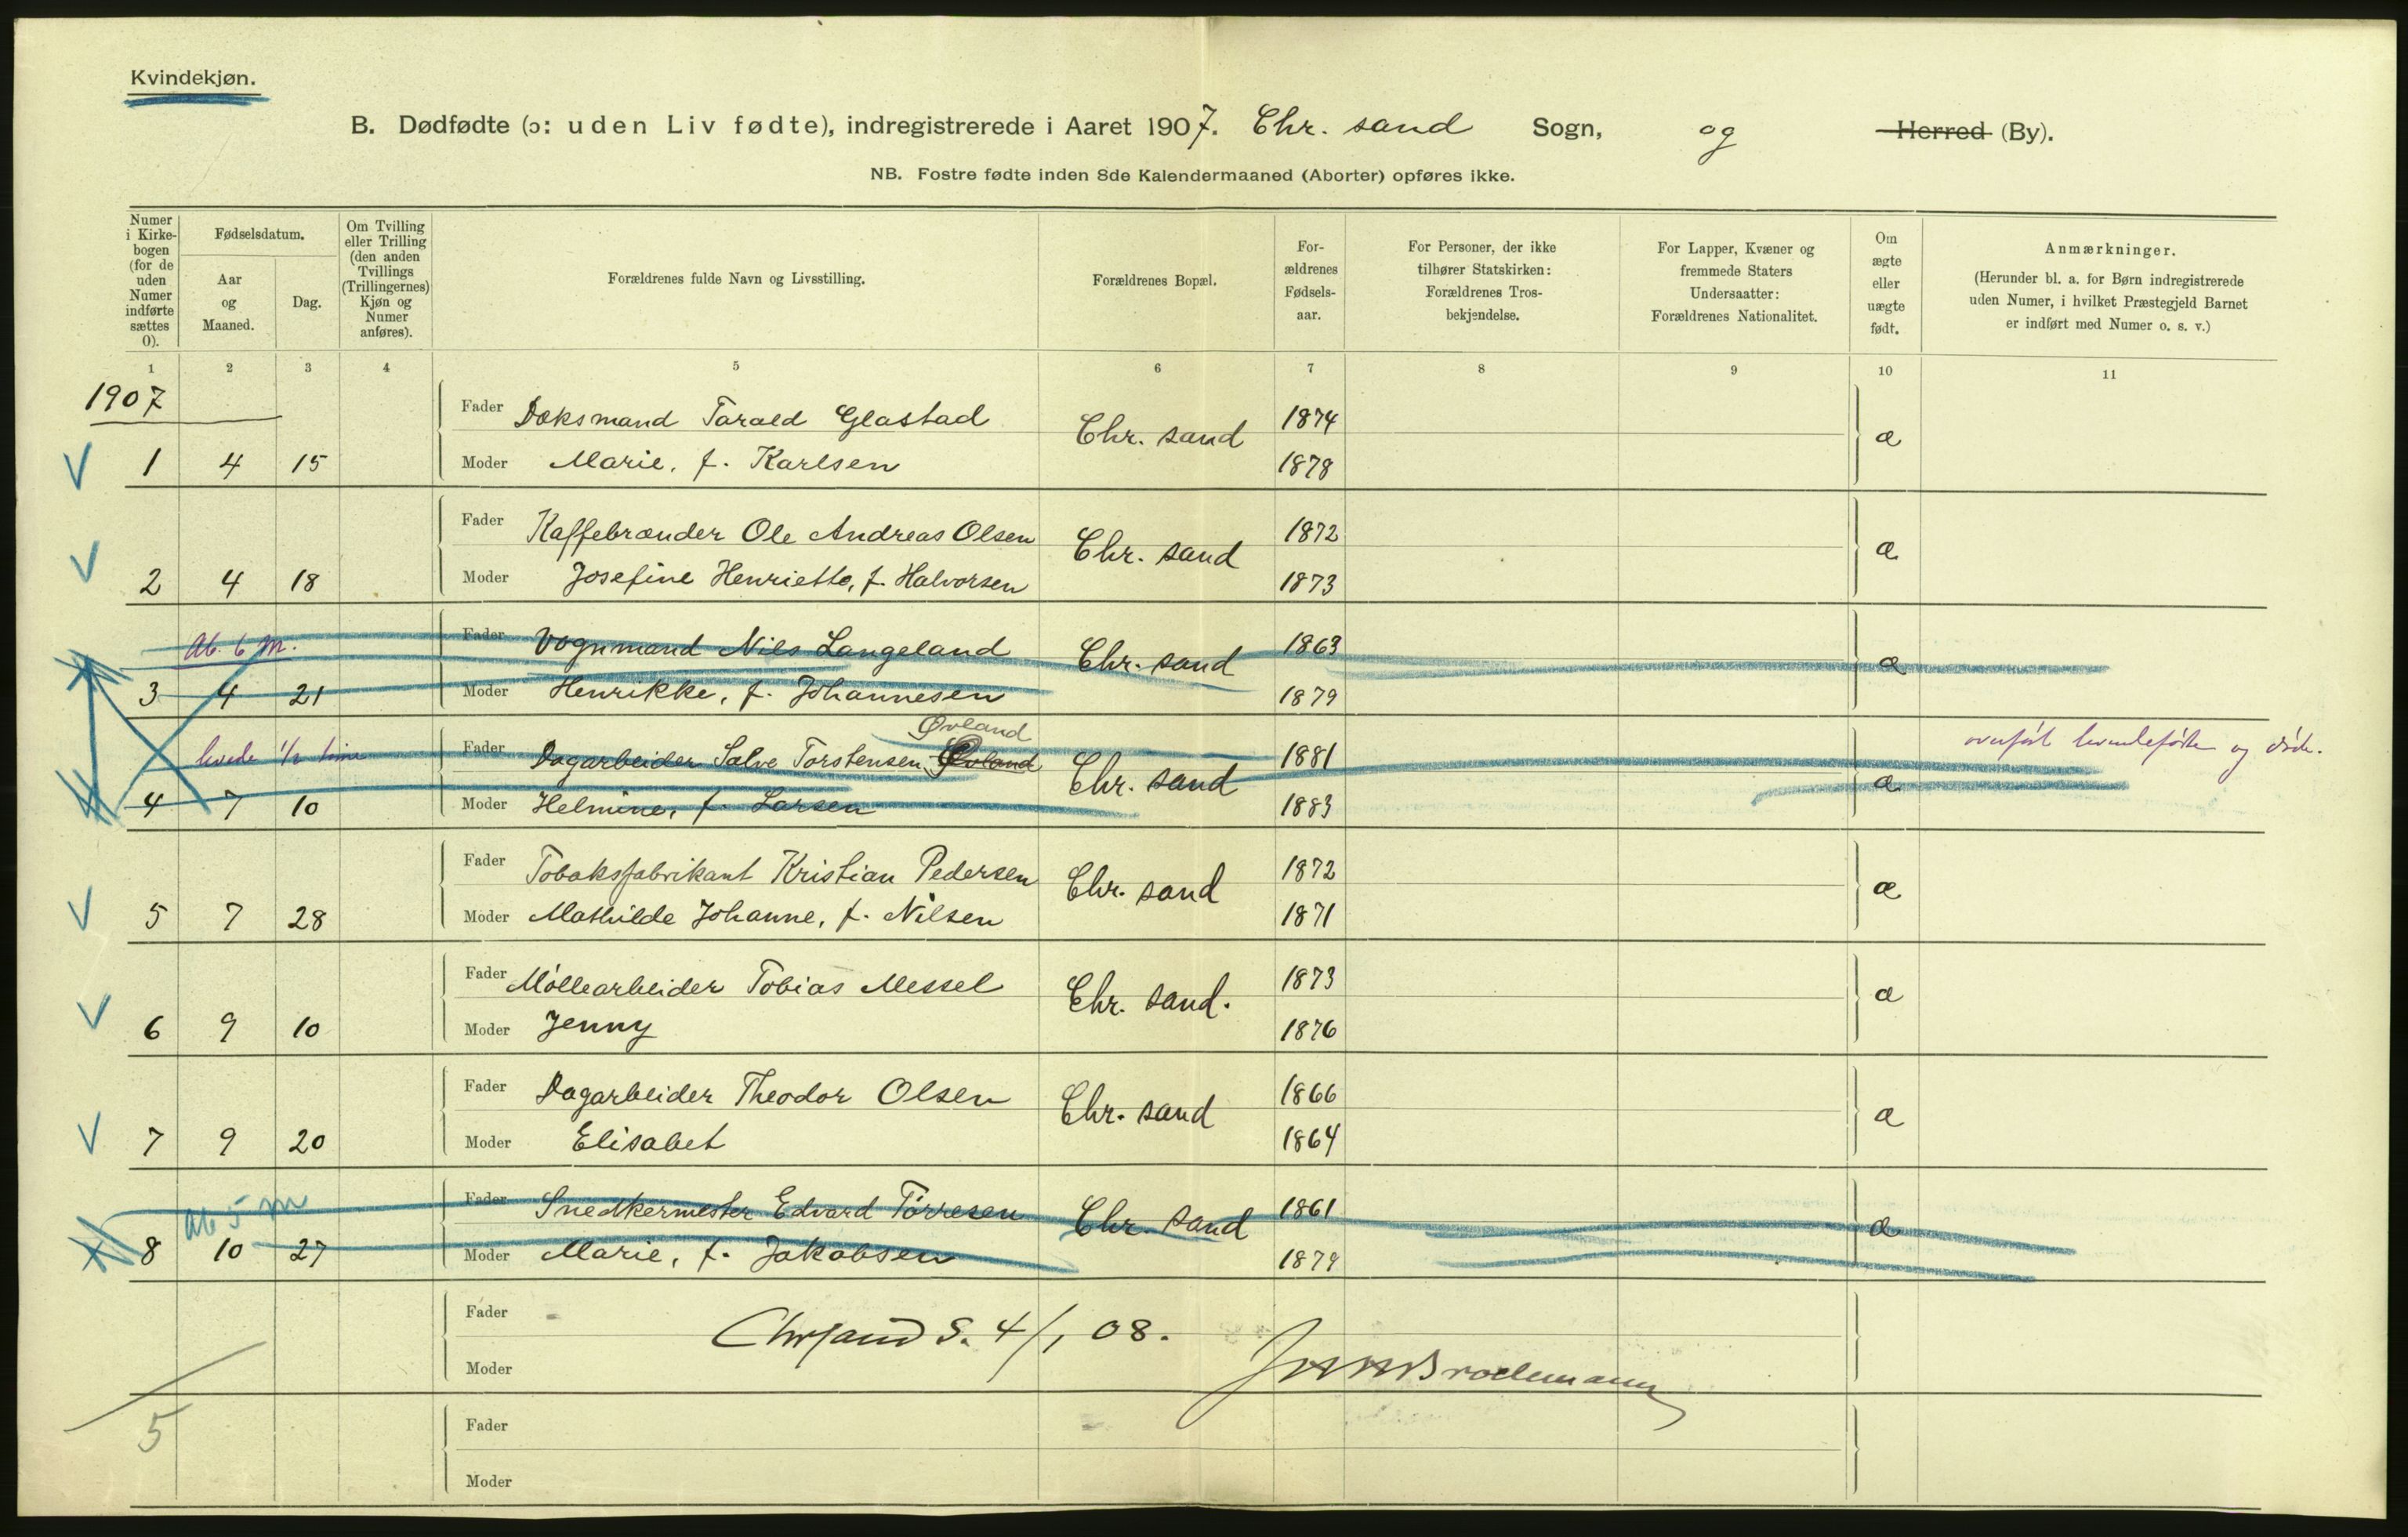 Kvindekjøn.
B. Dødfødte (ɔ: uden Liv fødte), indregistrerede i Aaret 1907. Chr. sand Sogn, og Herred (By).
NB. Fostre fødte inden 8de Kalendermaaned (Aborter) opføres ikke.
Numer
i Kirke-
bogen
(for de
uden
Numer
indførte
sættes
0).
Fødselsdatum.
Aar
og
Maaned.
Dag.
Om Tvilling
eller Trilling
(den anden
Tvillings
(Trillingernes)
Kjøn og
Numer
anføres).
Forældrenes fulde Navn og Livsstilling.
Forældrenes Bopæl.
For-
ældrenes
Fødsels-
aar.
For Personer, der ikke
tilhører Statskirken:
Forældrenes Tros-
bekjendelse.
For Lapper, Kvæner og
fremmede Staters
Undersaatter:
Forældrenes Nationalitet.
Om
ægte
eller
uægte
født.
Anmærkninger.
(Herunder bl. a. for Børn indregistrerede
uden Numer, i hvilket Præstegjeld Barnet
er indført med Numer o. s. v.)
1 2 3 4 5 6 7 8 9 10 11
1907
Fader Doksmand Tarald Glastad Chr. sand 1874 æ
1 4 15 Moder Marie, f. Karlsen 1878
Fader Kaffebrænder Ole Andreas Olsen Chr. sand 1872 æ
2 4 18 Moder Josefine Henriette, f. Halvorsen 1873
Ab. 6 M. Fader Vognmand Nils Langeland Chr. sand 1863 æ
3 4 21 Moder Henrikke, f. Johannesen 1879
Øvland
levede 1/2 time Fader Dagarbeider Salve Torstensen Øvland Chr. sand 1881 æ overført levendefødte og døde.
4 7 10 Moder Helmine, f. Larsen 1883
Fader Tobaksfabrikant Kristian Pedersen Chr. sand 1872 æ
5 7 28 Moder Mathilde Johanne, f. Nilsen 1871
Fader Møllearbeider Tobias Messel Chr. sand. 1873 æ
6 9 10 Moder Jenny 1876
Fader Dagarbeider Theodor Olsen Chr. sand 1866 æ
7 9 20 Moder Elisabet 1864
Ab 5 m Fader Snedkermester Edvard Tørresen Chr. sand 1861 æ
8 10 27 Moder Marie, f. Jakobsen 1879
Fader
Chrsand S. 4/1 08.
Moder
5
Fader
Moder